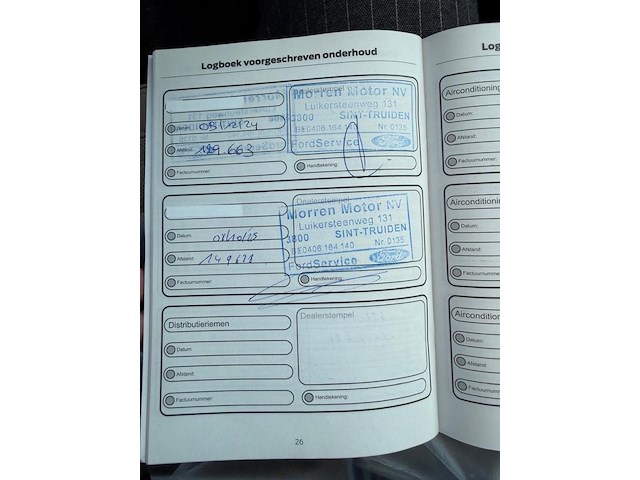 Logboek voorgeschreven onderhoud
Dealerstempel
Morren Motor NV
Luikersteenweg 131
3800 SINT-TRUIDEN
BE0406.164.140 Nr. 0135
FordService Ford
Datum:
Afstand: 129.663
Factuurnummer:
Handtekening:
Dealerstempel
Morren Motor NV
Luikersteenweg 131
3800 SINT-TRUIDEN
BE0406.164.140 Nr. 0135
FordService Ford
Datum: 01/10/25
Afstand:
Factuurnummer:
Handtekening:
Distributieriemen
Dealerstempel
Datum:
Afstand:
Factuurnummer:
Handtekening:
26
Log
Airconditioning
Datum:
Afstand:
Factuurnummer:
Airconditionin
Datum:
Afstand:
Factuurnummer:
Airconditior
Datum:
Afstand:
Factuurnummer: